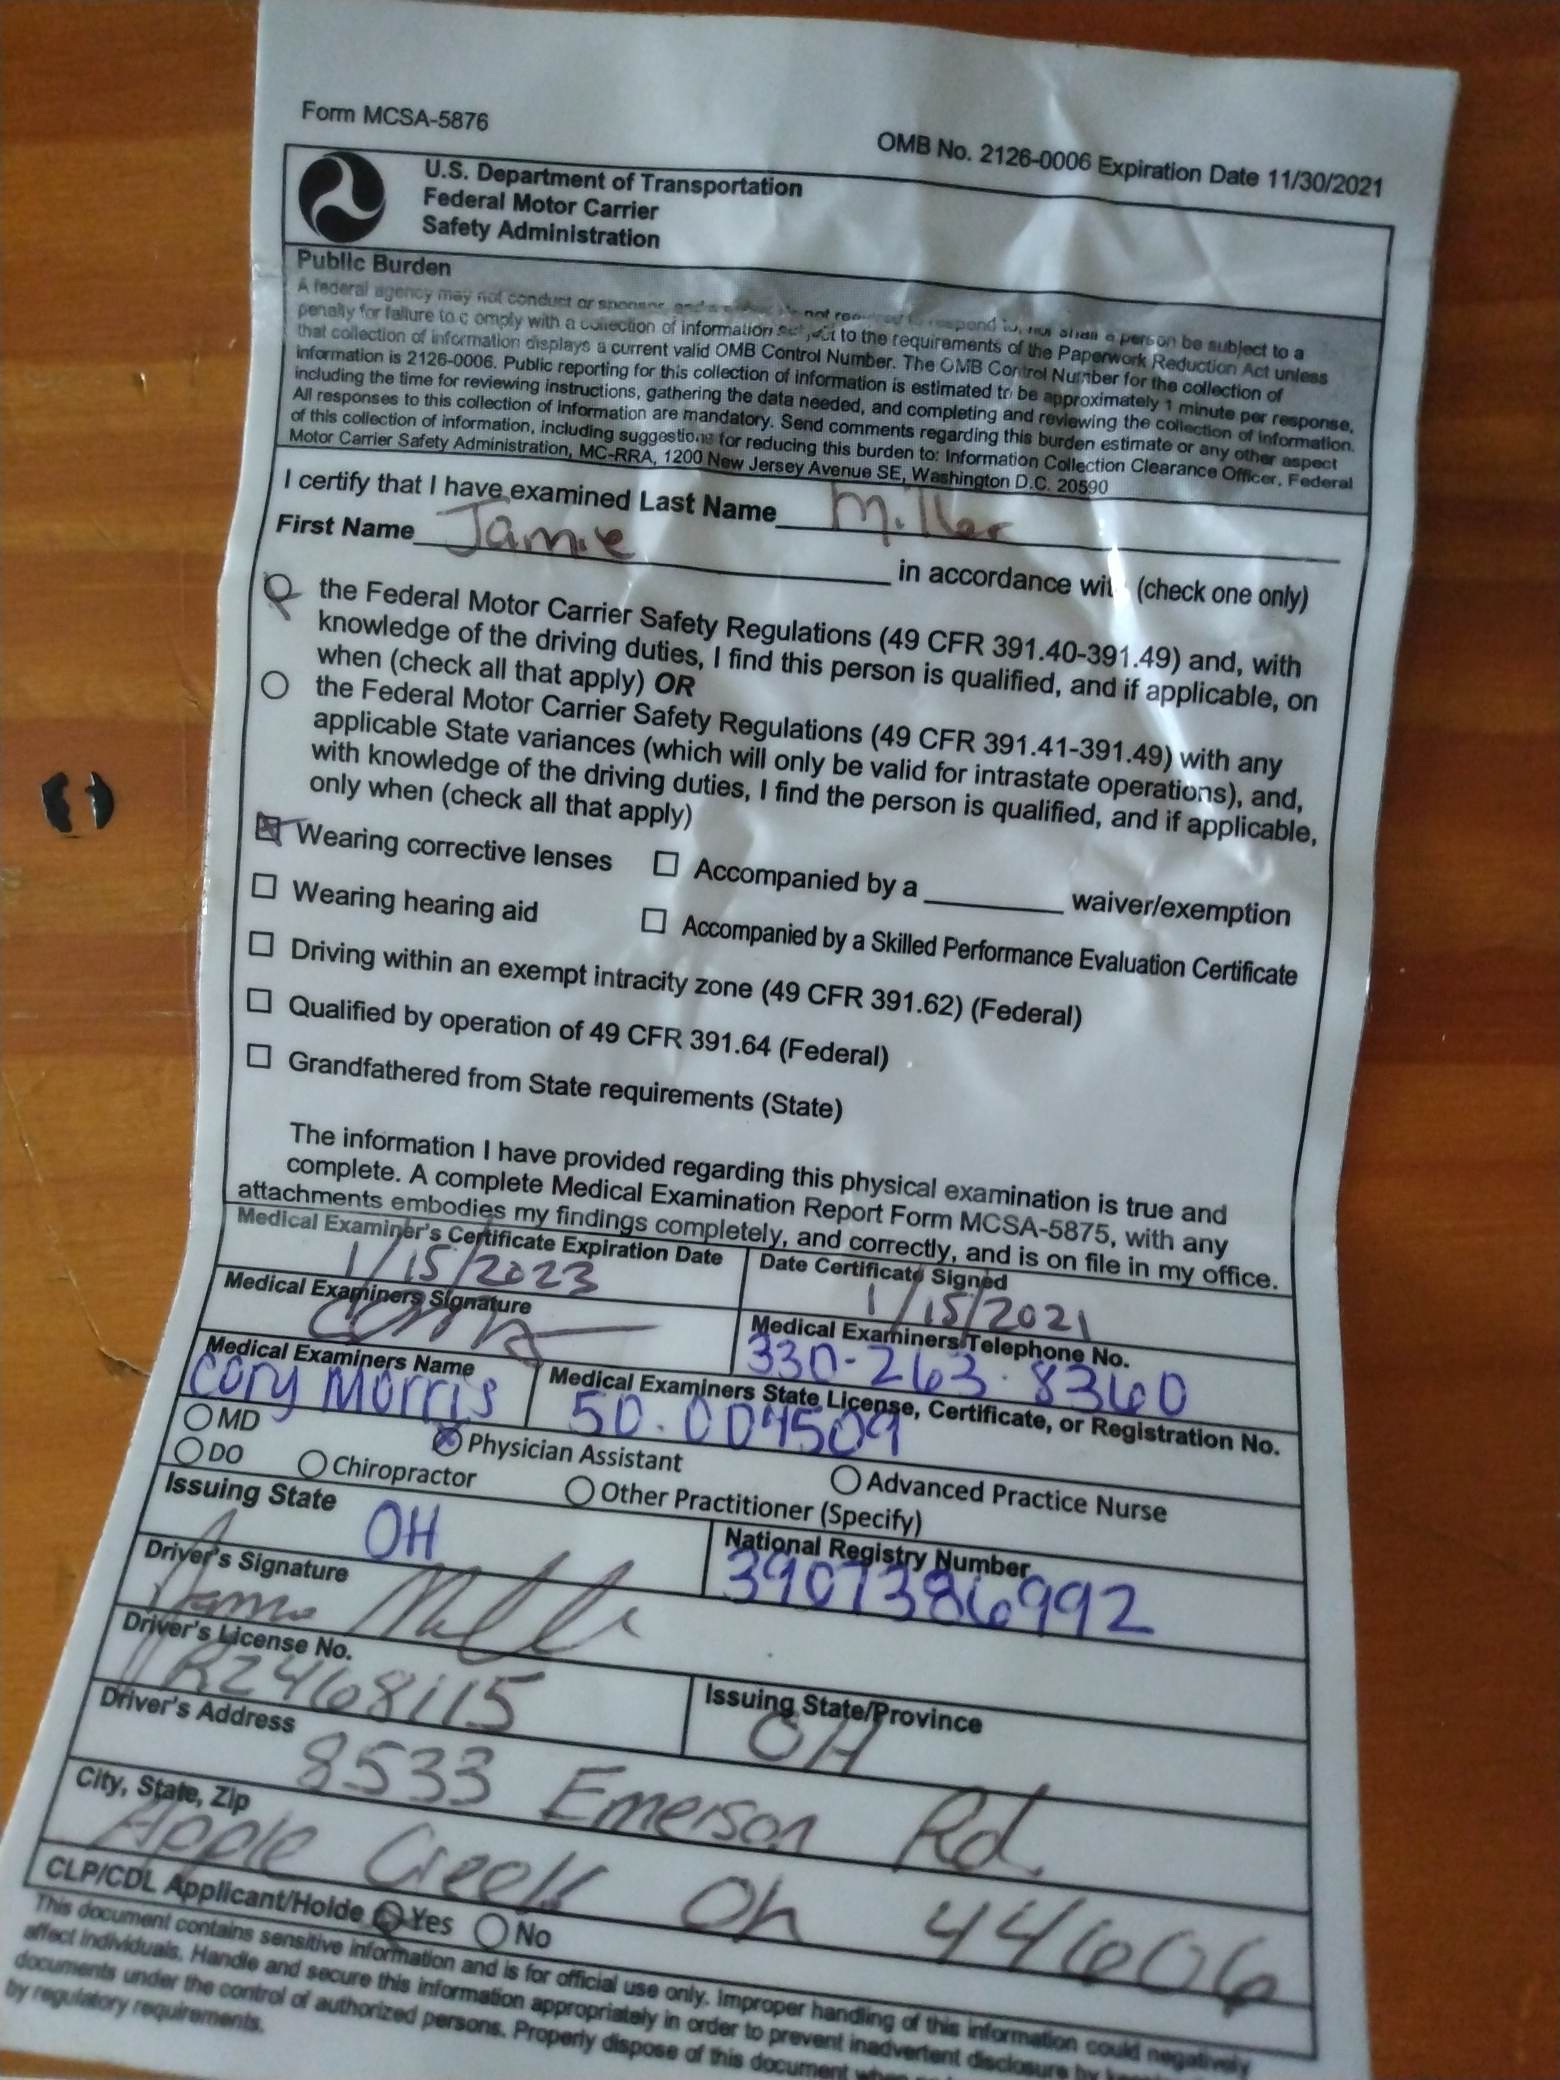 Form MCSA-5876
OMB No. 2126-0006 Expiration Date 11/30/2021
U.S. Department of Transportation
Federal Motor Carrier
Safety Administration
Public Burden
A federal agency may not conduct or sponsor, and a not required to respond to, nor shall a person be subject to a
penalty for failure to c omply with a collection of information subject to the requirements of the Paperwork Reduction Act unless
that collection of information displays a current valid OMB Control Number. The OMB Control Number for the collection of
information is 2126-0006. Public reporting for this collection of information is estimated to be approximately 1 minute per response,
including the time for reviewing instructions, gathering the data needed, and completing and reviewing the collection of information.
All responses to this collection of information are mandatory. Send comments regarding this burden estimate or any other aspect
of this collection of information, including suggestions for reducing this burden to: Information Collection Clearance Officer, Federal
Motor Carrier Safety Administration, MC-RRA, 1200 New Jersey Avenue SE, Washington D.C. 20590
I certify that I have examined Last Name Miller
First Name Jamie in accordance with (check one only)
the Federal Motor Carrier Safety Regulations (49 CFR 391.40-391.49) and, with
knowledge of the driving duties, I find this person is qualified, and if applicable, on
when (check all that apply) OR
the Federal Motor Carrier Safety Regulations (49 CFR 391.41-391.49) with any
applicable State variances (which will only be valid for intrastate operations), and,
with knowledge of the driving duties, I find the person is qualified, and if applicable,
only when (check all that apply)
Wearing corrective lenses Accompanied by a waiver/exemption
Wearing hearing aid Accompanied by a Skilled Performance Evaluation Certificate
Driving within an exempt intracity zone (49 CFR 391.62) (Federal)
Qualified by operation of 49 CFR 391.64 (Federal)
Grandfathered from State requirements (State)
The information I have provided regarding this physical examination is true and
complete. A complete Medical Examination Report Form MCSA-5875, with any
attachments embodies my findings completely, and correctly, and is on file in my office.
Medical Examiner's Certificate Expiration Date Date Certificate Signed
1/15/2023 1/15/2021
Medical Examiners Signature Medical Examiners Telephone No.
330-263-8360
Medical Examiners Name Medical Examiners State License, Certificate, or Registration No.
Cory Morris 50.004509
MD Physician Assistant Advanced Practice Nurse
DO Chiropractor Other Practitioner (Specify)
Issuing State OH National Registry Number
3907386992
Driver's Signature
Jamie Miller
Driver's License No. Issuing State/Province
OH
Driver's Address 8533 Emerson Rd.
City, State, Zip
Apple Creek Oh 44606
CLP/CDL Applicant/Holde Yes No
This document contains sensitive information and is for official use only. Improper handling of this information could negatively
affect individuals. Handle and secure this information appropriately in order to prevent inadvertent disclosure by
documents under the control of authorized persons. Properly dispose of this document when
by regulatory requirements.